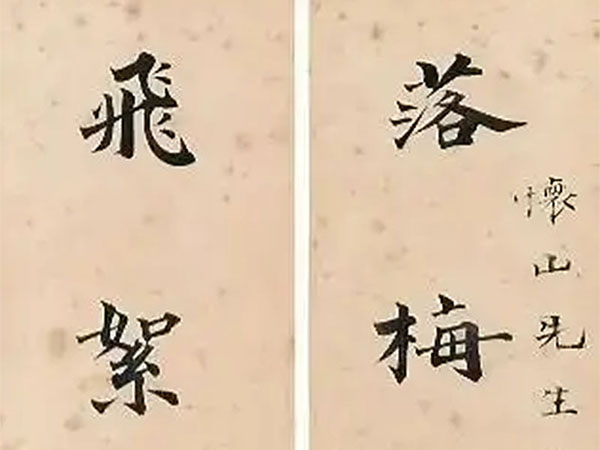 懷山先生
落梅
飛絮